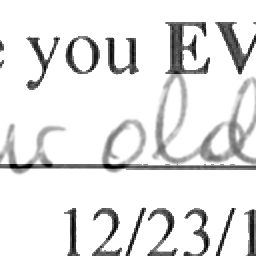 e you EV
old
12/23/1